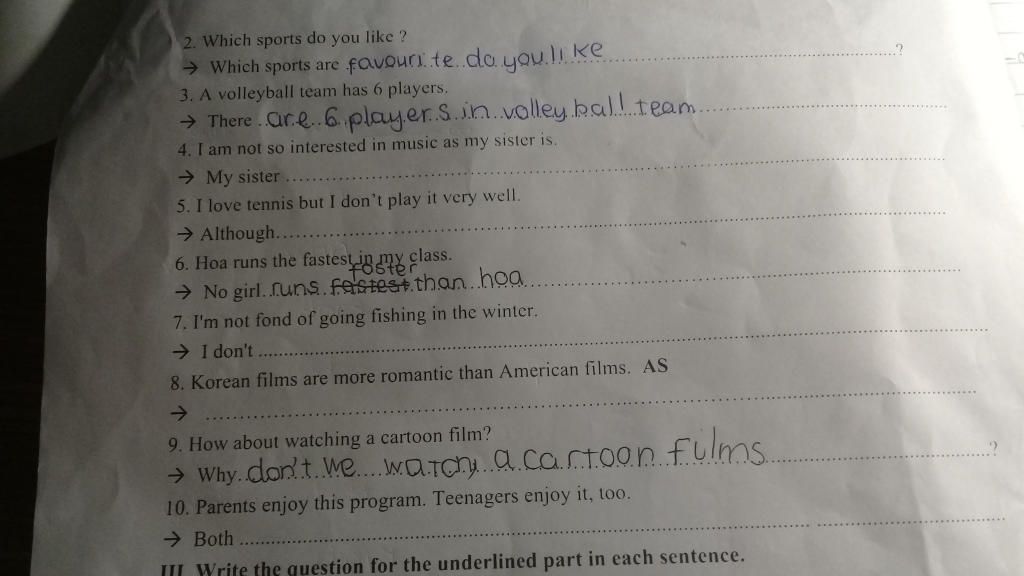 2. Which sports do you like ?
→ Which sports are favourite do you like ?
3. A volleyball team has 6 players.
→ There are 6 players in volleyball team
4. I am not so interested in music as my sister is.
→ My sister
5. I love tennis but I don't play it very well.
→ Although
6. Hoa runs the fastest in my class.
foster
→ No girl runs fastest than hoa
7. I'm not fond of going fishing in the winter.
→ I don't
8. Korean films are more romantic than American films. AS
→
9. How about watching a cartoon film?
→ Why don't we watch a cartoon films ?
10. Parents enjoy this program. Teenagers enjoy it, too.
→ Both
III Write the question for the underlined part in each sentence.